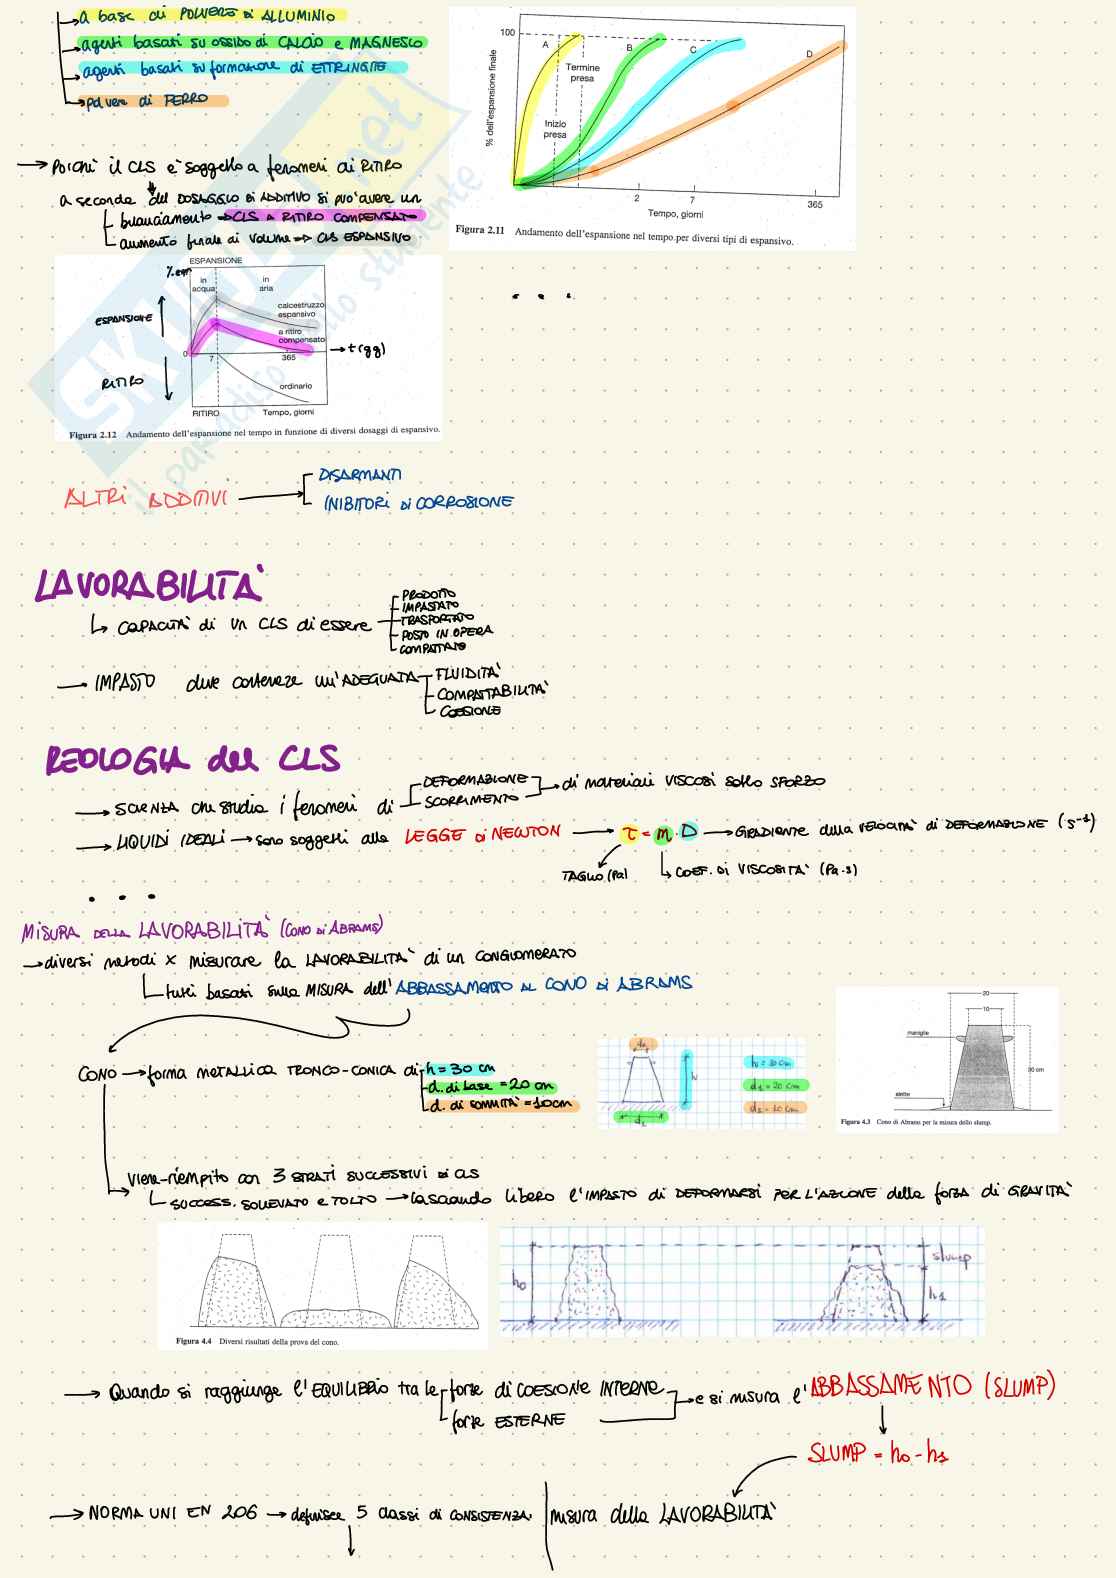 a base di POLVERE di ALLUMINIO
agenti basati su OSSIDO di CALCIO e MAGNESIO
agenti basati su formazione di ETTRINGITE
polvere di FERRO
% dell'espansione finale
100
A
B
C
D
Termine presa
Inizio presa
2
7
365
Tempo, giorni
Figura 2.11 Andamento dell'espansione nel tempo per diversi tipi di espansivo.
→ Poiché il CLS è soggetto a fenomeni di RITIRO
a seconda del DOSAGGIO DI ADDITIVO si può avere un
bilanciamento ⇒ CLS A RITIRO COMPENSATO
aumento finale di volume ⇒ CLS ESPANSIVO
. . .
ESPANSIONE
in acqua
in aria
calcestruzzo espansivo
a ritiro compensato
0
7
365
→ t (gg)
ordinario
RITIRO
Tempo, giorni
ESPANSIONE
RITIRO
Figura 2.12 Andamento dell'espansione nel tempo in funzione di diversi dosaggi di espansivo.
ALTRI ADDITIVI
DISARMANTI
INIBITORI DI CORROSIONE
LAVORABILITÀ
CAPACITÀ di un CLS di essere
PRODOTTO
IMPASTATO
TRASPORTATO
POSTO IN OPERA
COMPATTATO
→ IMPASTO deve contenere un'ADEGUATA
FLUIDITÀ
COMPATTABILITÀ
COESIONE
REOLOGIA del CLS
→ SCIENZA che studia i fenomeni di
DEFORMAZIONE
SCORRIMENTO
di materiali VISCOSI sotto SFORZO
→ LIQUIDI IDEALI → sono soggetti alle LEGGE DI NEWTON → τ = m · D → GRADIENTE della VELOCITÀ di DEFORMAZIONE (s⁻¹)
TAGLIO (Pa)
COEF. DI VISCOSITÀ (Pa·s)
. . .
MISURA DELLA LAVORABILITÀ (CONO DI ABRAMS)
→ diversi metodi x misurare la LAVORABILITÀ di un CONGLOMERATO
tutti basati sulla MISURA dell'ABBASSAMENTO AL CONO DI ABRAMS
CONO → forma METALLICA TRONCO-CONICA di
h = 30 cm
d. di base = 20 cm
d. di sommità = 10 cm
d₂
h
d₁
h₀ = 30 cm
d₁ = 20 cm
d₂ = 10 cm
20
10
maniglie
30 cm
alette
Figura 4.3 Cono di Abrams per la misura dello slump.
viene riempito con 3 STRATI SUCCESSIVI DI CLS
SUCCESS. SOLLEVATO e TOLTO → lasciando libero l'IMPASTO di DEFORMARSI PER L'AZIONE della forza di GRAVITÀ
Figura 4.4 Diversi risultati della prova del cono.
h₀
slump
h₁
→ Quando si raggiunge l'EQUILIBRIO tra le
forze di COESIONE INTERNE
forze ESTERNE
e si misura l'ABBASSAMENTO (SLUMP)
SLUMP = h₀ - h₁
→ NORMA UNI EN 206 → definisce 5 classi di CONSISTENZA
misura della LAVORABILITÀ